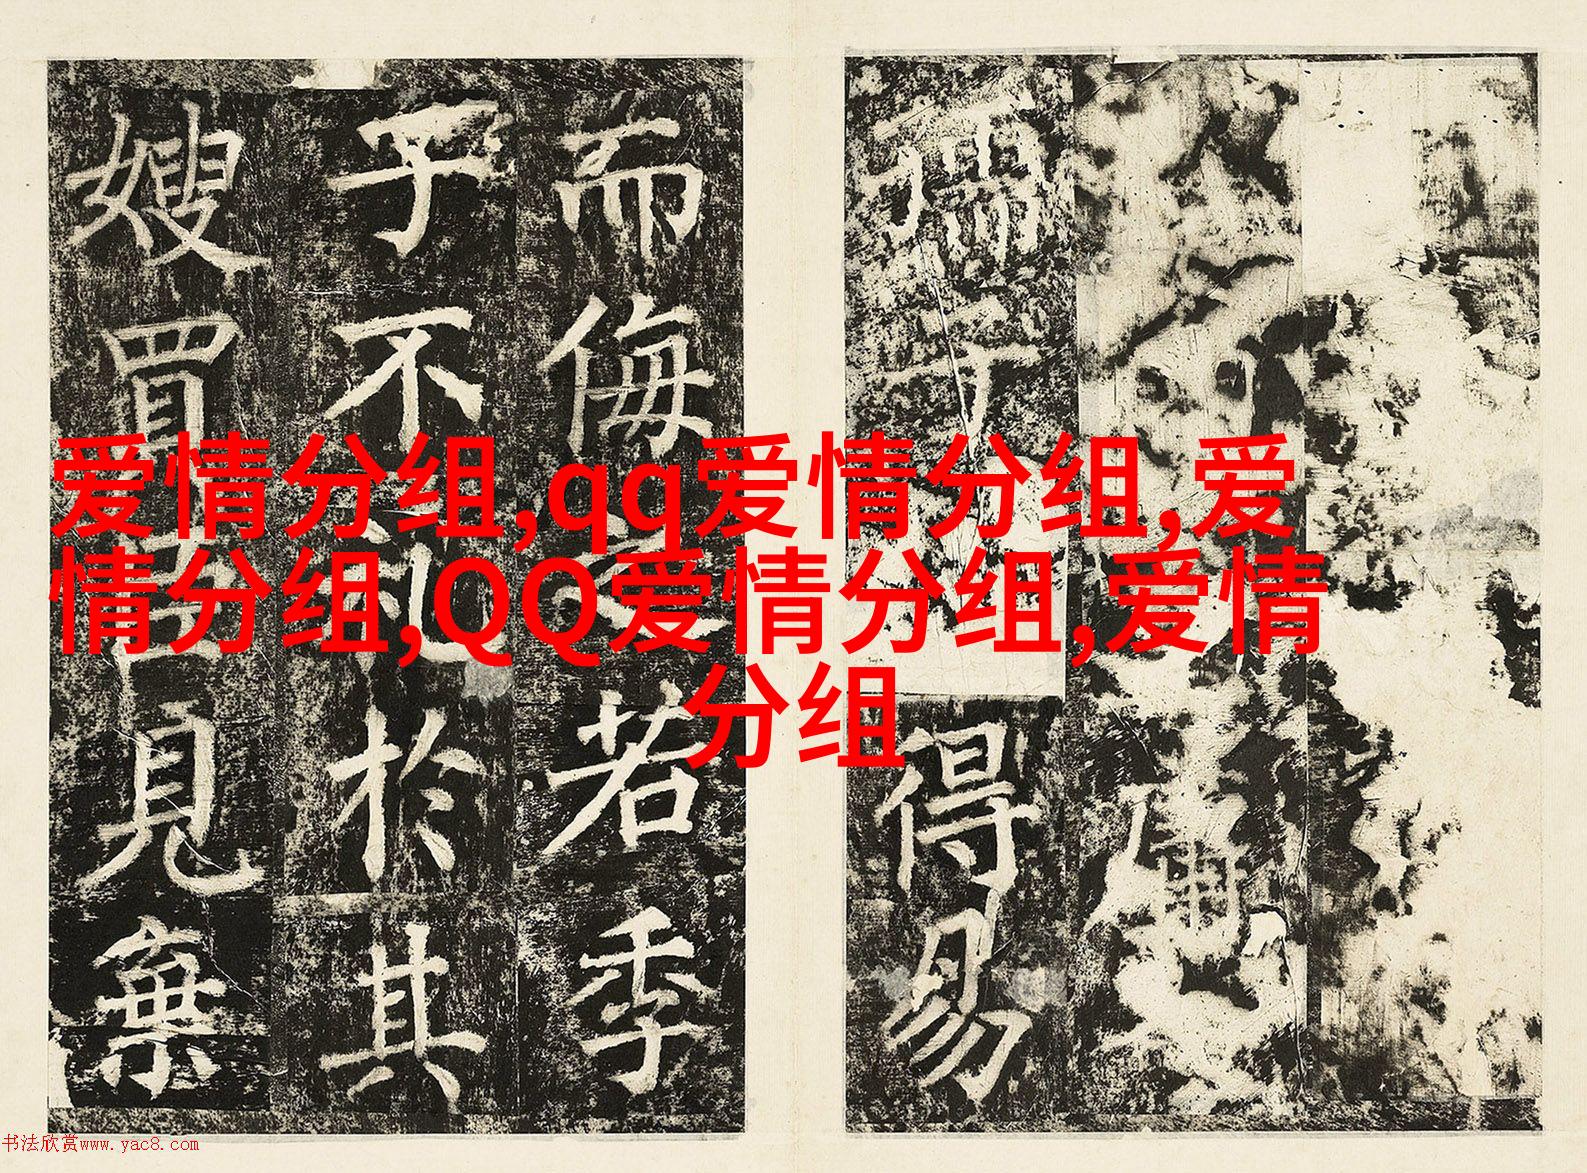 爱情分组,qq爱情分组,爱
情分组,QQ爱情分组,爱情
分组
得易
而侮之若季
子不礼於其
嫂買臣見棄
书法欣赏www.yac8.com